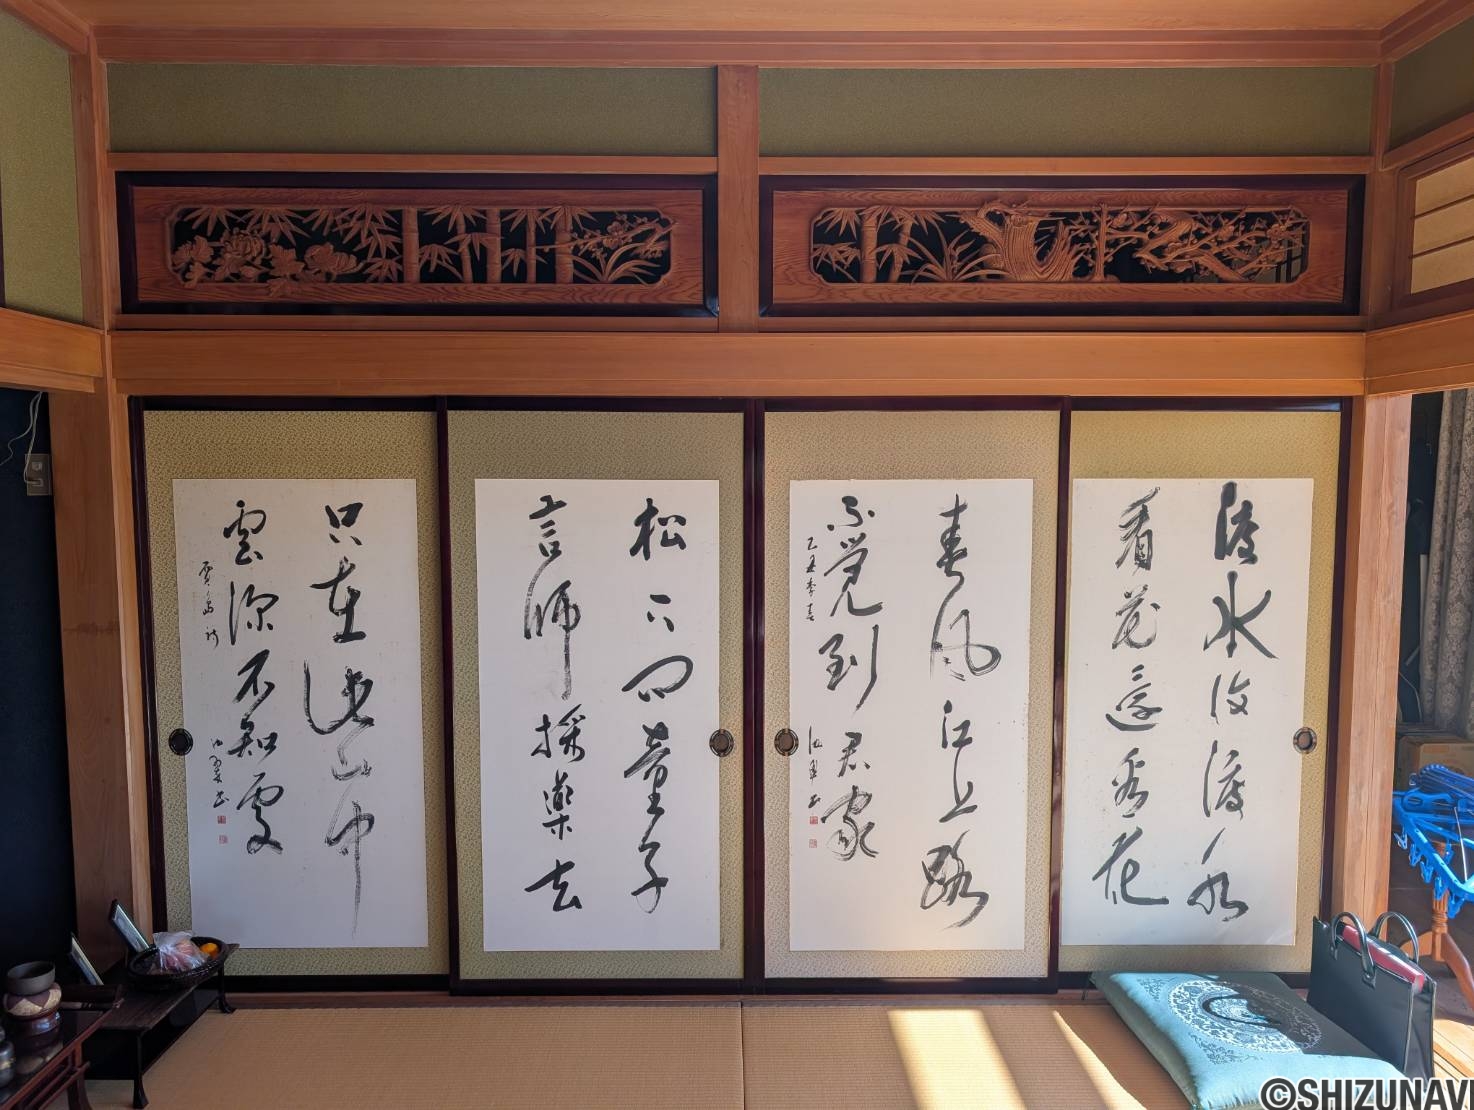 渡水復渡水
看花還看花
春風江上路
不覚到君家
乙丑季春
松下問童子
言師採薬去
只在此山中
雲深不知処
賈島詩
©SHIZUNAVI